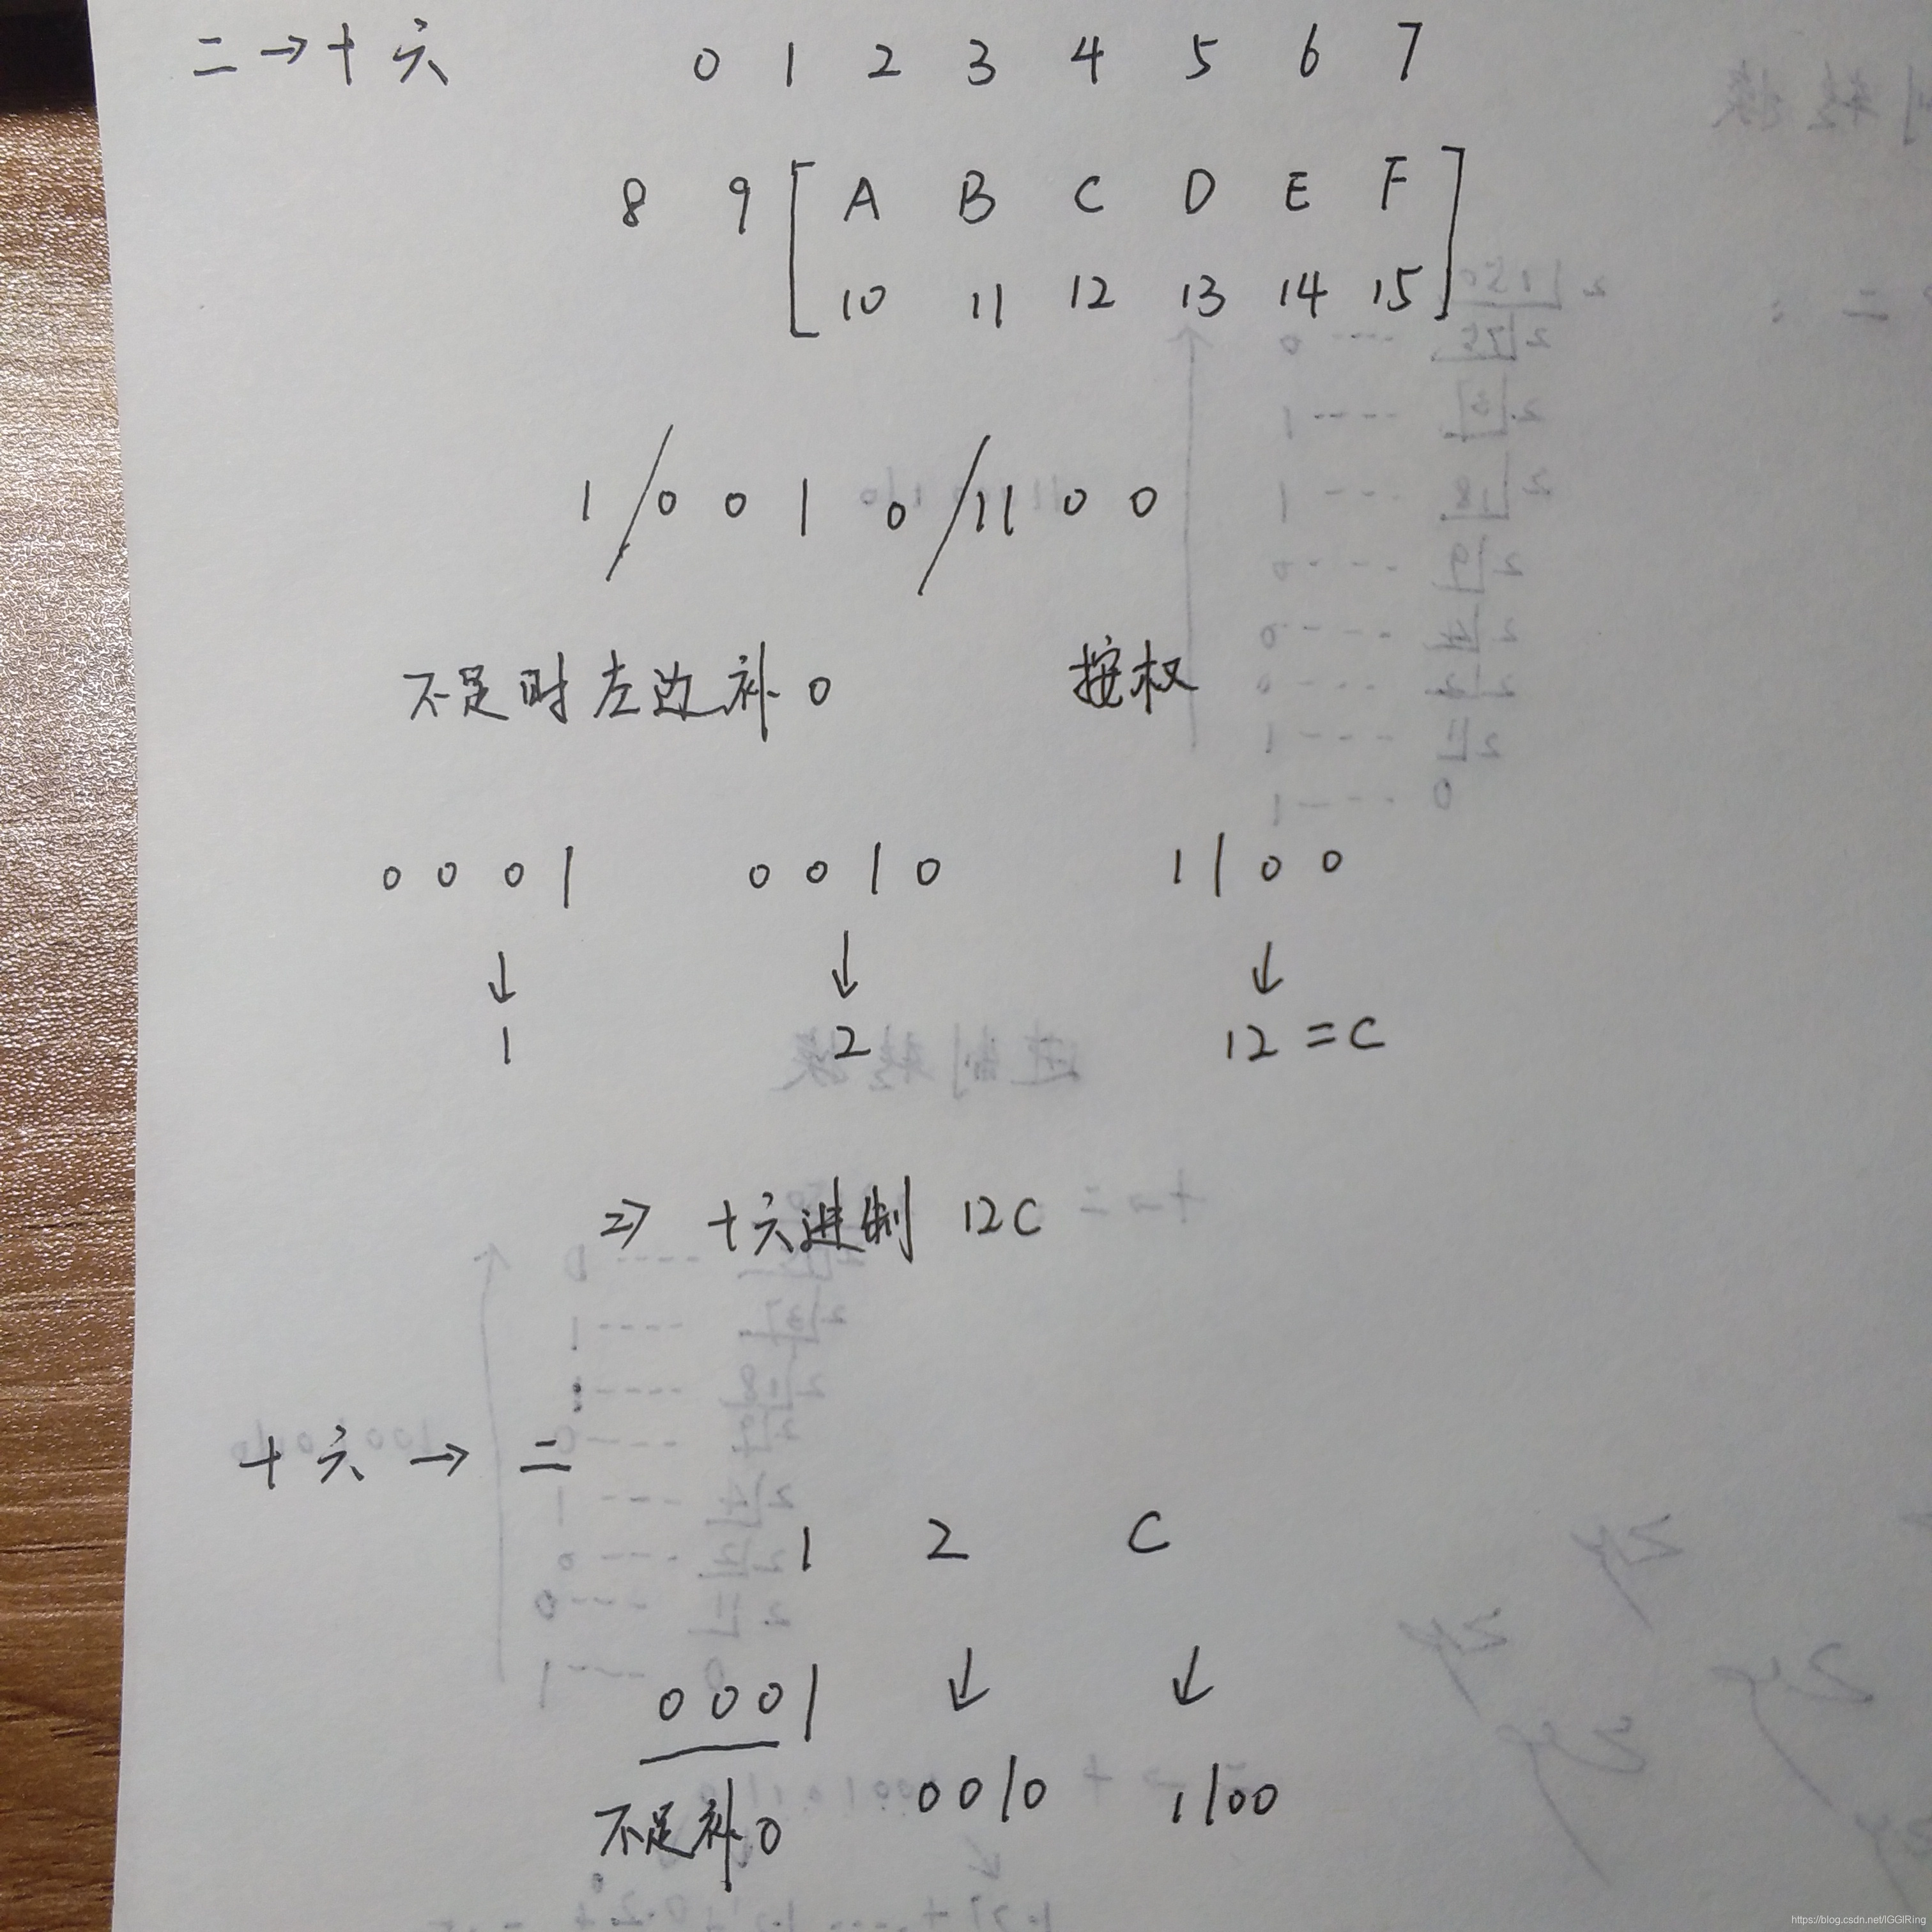 二→十六 0 1 2 3 4 5 6 7
8 9 [ A B C D E F ]
10 11 12 13 14 15
1/0010/1100
不足时左边补0 按权
0001 0010 1100
↓ ↓ ↓
1 2 12=C
=> 十六进制 12C
十六→二
1 2 C
0001 ↓ ↓
不足补0 0010 1100
https://blog.csdn.net/IGGIRing